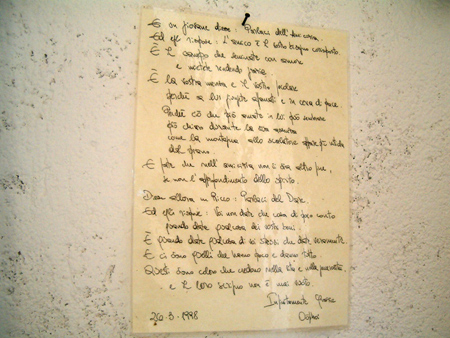 E un giovane disse: Parlaci dell'Amicizia.
Ed egli rispose: L'amico è il vostro bisogno corrisposto.
È il campo che seminate con amore
e mietete rendendo grazie.
È la vostra mensa e il vostro focolare
perché a lui giungete affamati e in cerca di pace
Perché ciò che più amate in lui può essere
più chiaro durante la sua assenza
come la montagna allo scalatore appare più nitida
dal piano.
E per voi nell'amicizia non vi sia altro fine,
se non l'approfondimento dello spirito.
Disse allora un Ricco: Parlaci del Dare.
Ed egli rispose: Voi non date che cosa di poco conto
quando date qualcosa dei vostri beni.
È quando date qualcosa di voi stessi che date veramente.
E ci sono quelli che hanno poco e danno tutto.
Questi sono coloro che credono nella vita e nella sua
e il loro scrigno non è mai vuoto.
Infinitamente Grazie
20-3-1998